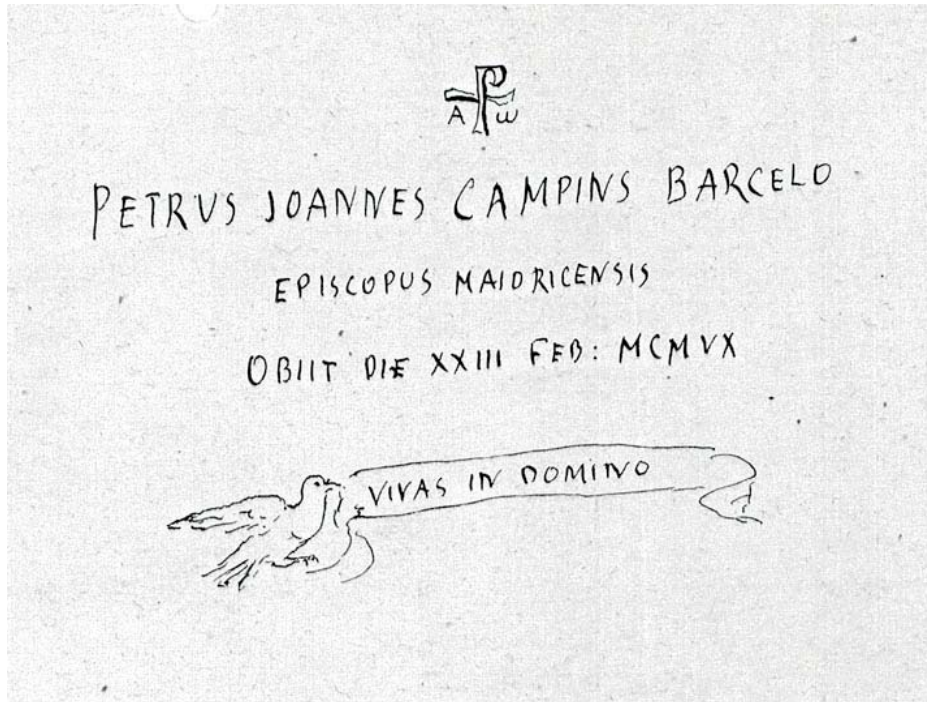 A ω
PETRVS JOANNES CAMPINS BARCELO
EPISCOPUS MAIORICENSIS
OBIIT DIE XXIII FEB: MCMVX
VIVAS IN DOMINO